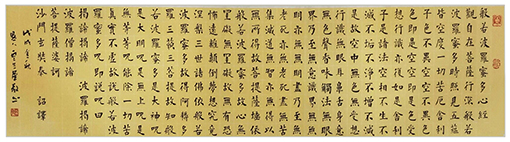 般若波羅蜜多心經
觀自在菩薩行深般若
波羅蜜多時照見五蘊
皆空度一切苦厄舍利
子色不異空空不異色
色即是空空即是色受
想行識亦復如是舍利
子是諸法空相不生不
滅不垢不淨不增不減
是故空中無色無受想
行識無眼耳鼻舌身意
無色聲香味觸法無眼
界乃至無意識界無無
明亦無無明盡乃至無
老死亦無老死盡無苦
集滅道無智亦無得以
無所得故菩提薩埵依
般若波羅蜜多故心無
罣礙無罣礙故無有恐
怖遠離顛倒夢想究竟
涅槃三世諸佛依般若
波羅蜜多故得阿耨多
羅三藐三菩提故知般
若波羅蜜多是大神呪
是大明呪是無上呪是
無等等呪能除一切苦
真實不虛故說般若波
羅蜜多呪即說呪曰
揭諦揭諦 波羅揭諦
波羅僧揭諦
菩提薩婆訶
沙門玄奘奉 詔譯